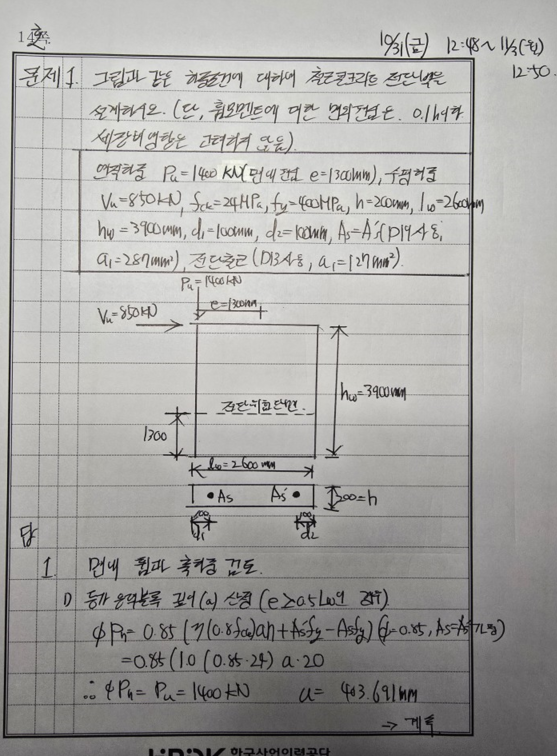 10/31(금) 12:48~11/3(월)
12:50.
문제1. 그림과 같은 하중조건에 대하여 철근콘크리트 전단벽을
설계하시오. (단, 휨모멘트에 대한 면외편심은 0.1h이하
세장비영향은 고려하지 않음).
연직하중 Pu=1400kN(면내편심 e=1300mm), 수평하중
Vu=850kN, fck=24MPa, fy=400MPa, h=200mm, lw=2600mm
hw=3900mm, d1=100mm, d2=100mm, As=A's(D19사용,
a1=287mm²), 전단철근(D13사용, a1=127mm²).
Pu=1400kN
Vu=850kN
e=1300mm
hw=3900mm
전단위험단면
1300
lw=2600mm
As As'
200=h
100 100
d1 d2
답
1. 면내 휨과 축하중 검토.
1) 등가응력블록 깊이(a) 산정 (e≥0.5lw인 경우)
ϕPn=0.85(η(0.85fck)ah+As'fy-Asfy) (ϕ=0.85, As=As'가정)
=0.85(1.0(0.85·24)a·20
∴ ϕPn=Pu=1400kN a=403.691mm
→ 계속
한국산업인력공단